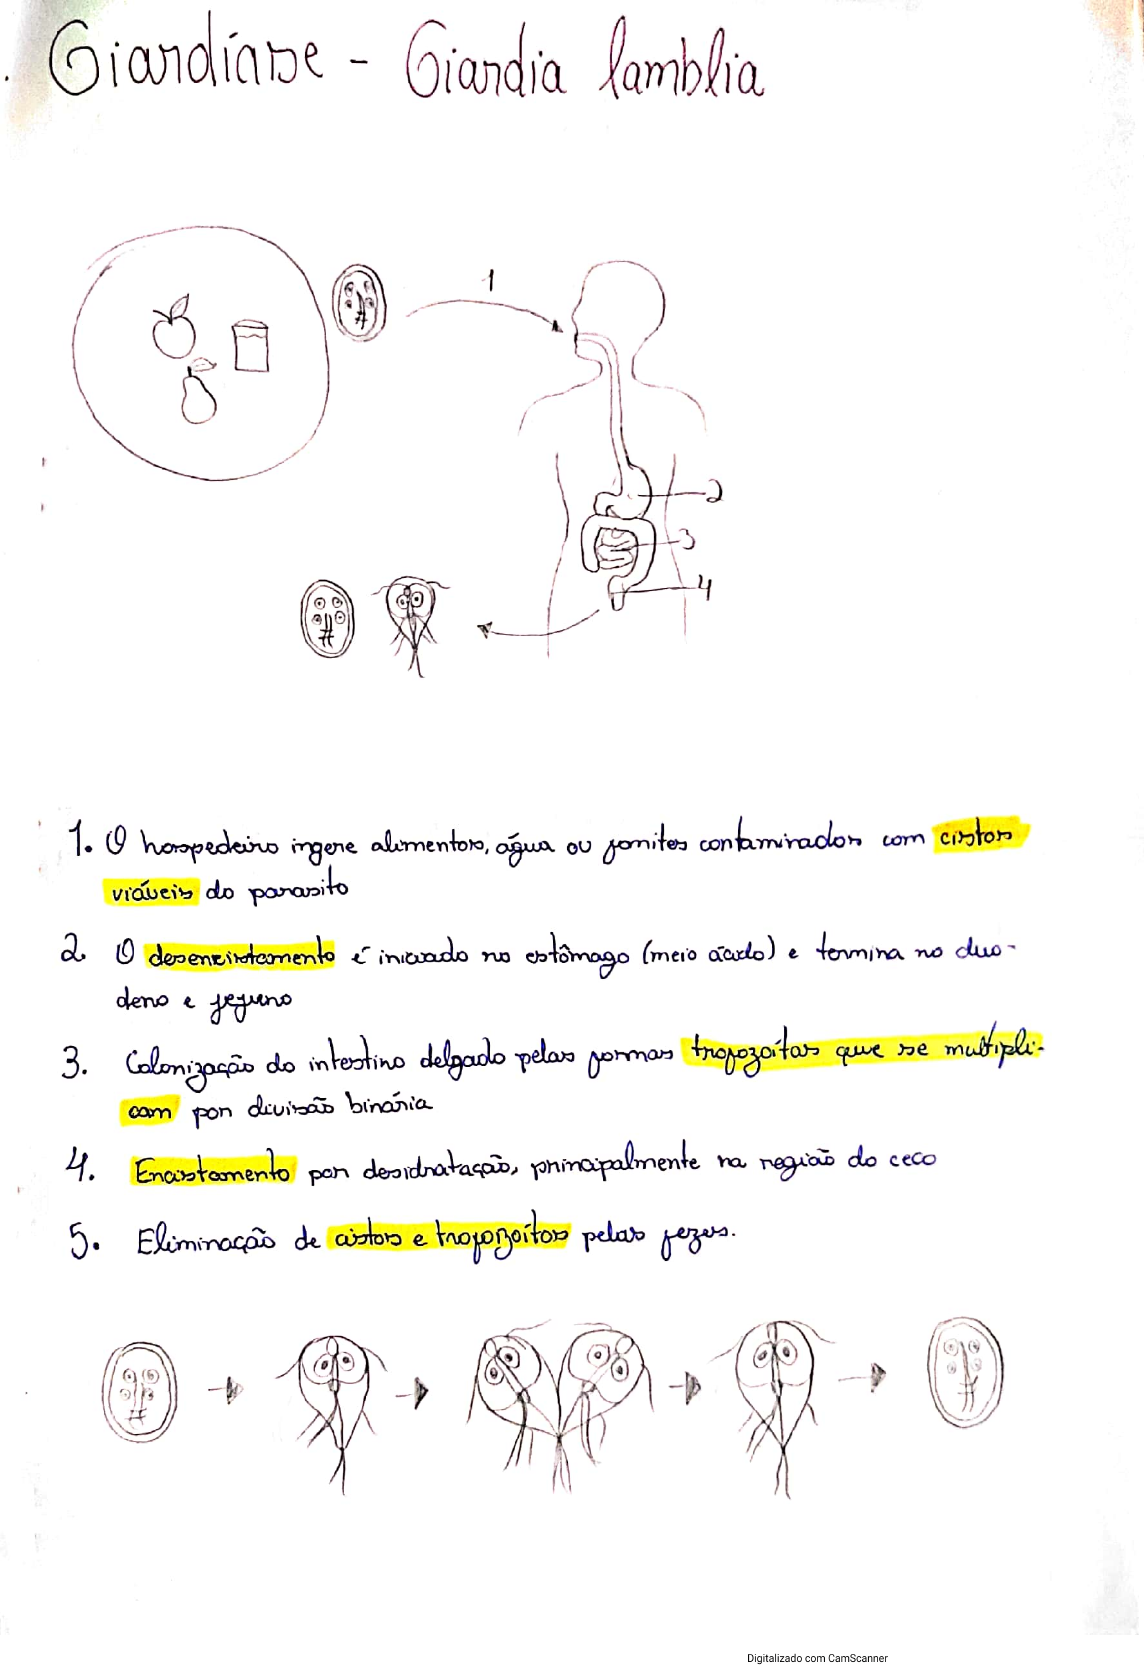 Giardíase - Giardia lamblia
1
2
3
4
1. O hospedeiro ingere alimentos, água ou fomites contaminados com cistos
viáveis do parasito
2. O desencistamento é iniciado no estômago (meio ácido) e termina no duo-
deno e jejuno
3. Colonização do intestino delgado pelas formas trofozoítas que se multipli-
cam por divisão binária
4. Encistamento por desidratação, principalmente na região do ceco
5. Eliminação de cistos e trofozoítos pelas fezes.
Digitalizado com CamScanner